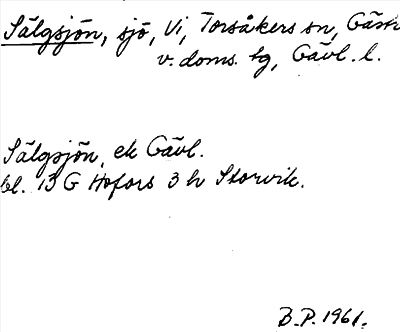 Sälgsjön, sjö, Vi, Torsåkers sn, Gästr
v. doms. tg, Gävl. l.
Sälgsjön, ek Gävl.
bl. 13 G Hofors 3 h Storvik.
B.P. 1961.